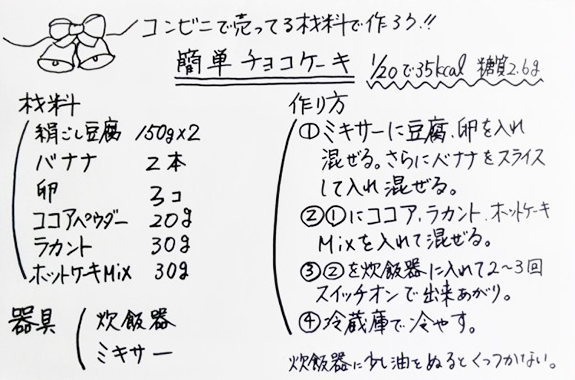 コンビニで売ってる材料で作ろう!!
簡単チョコケーキ 1/20で35kcal 糖質2.6g
材料
絹ごし豆腐 150g×2
バナナ 2本
卵 3コ
ココアパウダー 20g
ラカント 30g
ホットケーキMix 30g
器具
炊飯器
ミキサー
作り方
①ミキサーに豆腐、卵を入れ
混ぜる。さらにバナナをスライス
して入れ混ぜる。
②①にココア、ラカント、ホットケーキ
Mixを入れて混ぜる。
③②を炊飯器に入れて2～3回
スイッチオンで出来あがり。
④冷蔵庫で冷やす。
炊飯器に少し油をぬるとくっつかない。